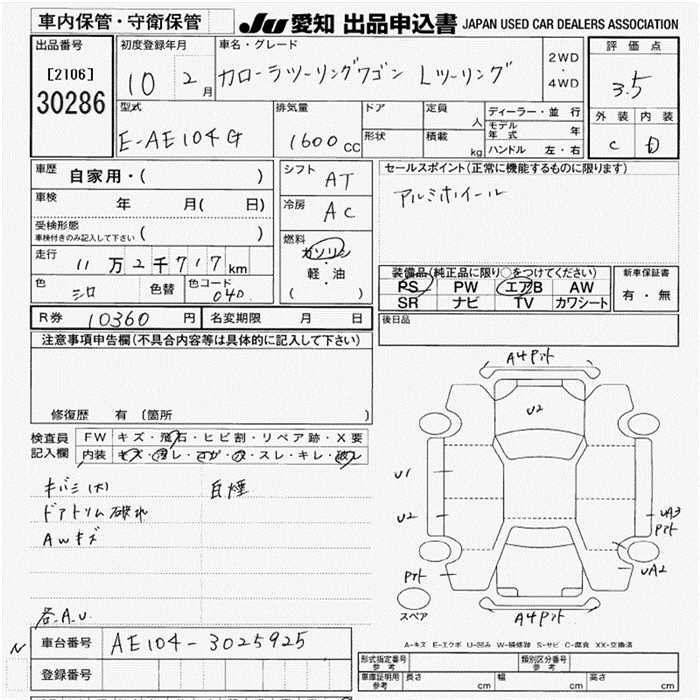 車内保管・守衛保管 JU 愛知 出品申込書 JAPAN USED CAR DEALERS ASSOCIATION
出品番号 初度登録年月 車名・グレード 評価点
[2106] 10 2月 カローラツーリングワゴン Lツーリング 2WD・4WD 3.5
30286
型式 排気量 ドア 定員 人 ディーラー・並行 外装 内装
E-AE104G 1600cc 形状 積載 kg モデル年式 年 C D
ハンドル 左・右
車歴 自家用・( ) シフト AT セールスポイント(正常に機能するものに限ります)
車検 年 月( 日) 冷房 AC アルミホイール
受検形態 ( )
車検付きのみ記入して下さい
燃料 ガソリン・軽・油 ( )
走行 11万2千717km
装備品(純正品に限り○をつけてください) 新車保証書
色 シロ 色替 色コード 040 PS PW エアB AW 有・無
SR ナビ TV カワシート
R券 10360円 名変期限 月 日 後日品
注意事項申告欄(不具合内容等は具体的に記入して下さい)
修復歴 有 〔箇所 〕
検査員記入欄 FW キズ・飛石・ヒビ割・リペア跡・X要
内装 キズ・汚レ・コゲ・穴・スレ・キレ・破レ
キバミ(大) 白煙
ドアトリム破れ
AWキズ
各A.U.
A4Pット
U2
U1
U2
UA3
Pット
Pット UA2
スペア A4Pット
A-キズ E-エクボ U-凹み W-補修跡 S-サビ C-腐食 XX-交換済
N 車台番号 AE104-3025925
登録番号
形式指定番号 参考 類別区分番号 参考
車庫証明用 参考 長さ cm 幅 cm 高さ cm